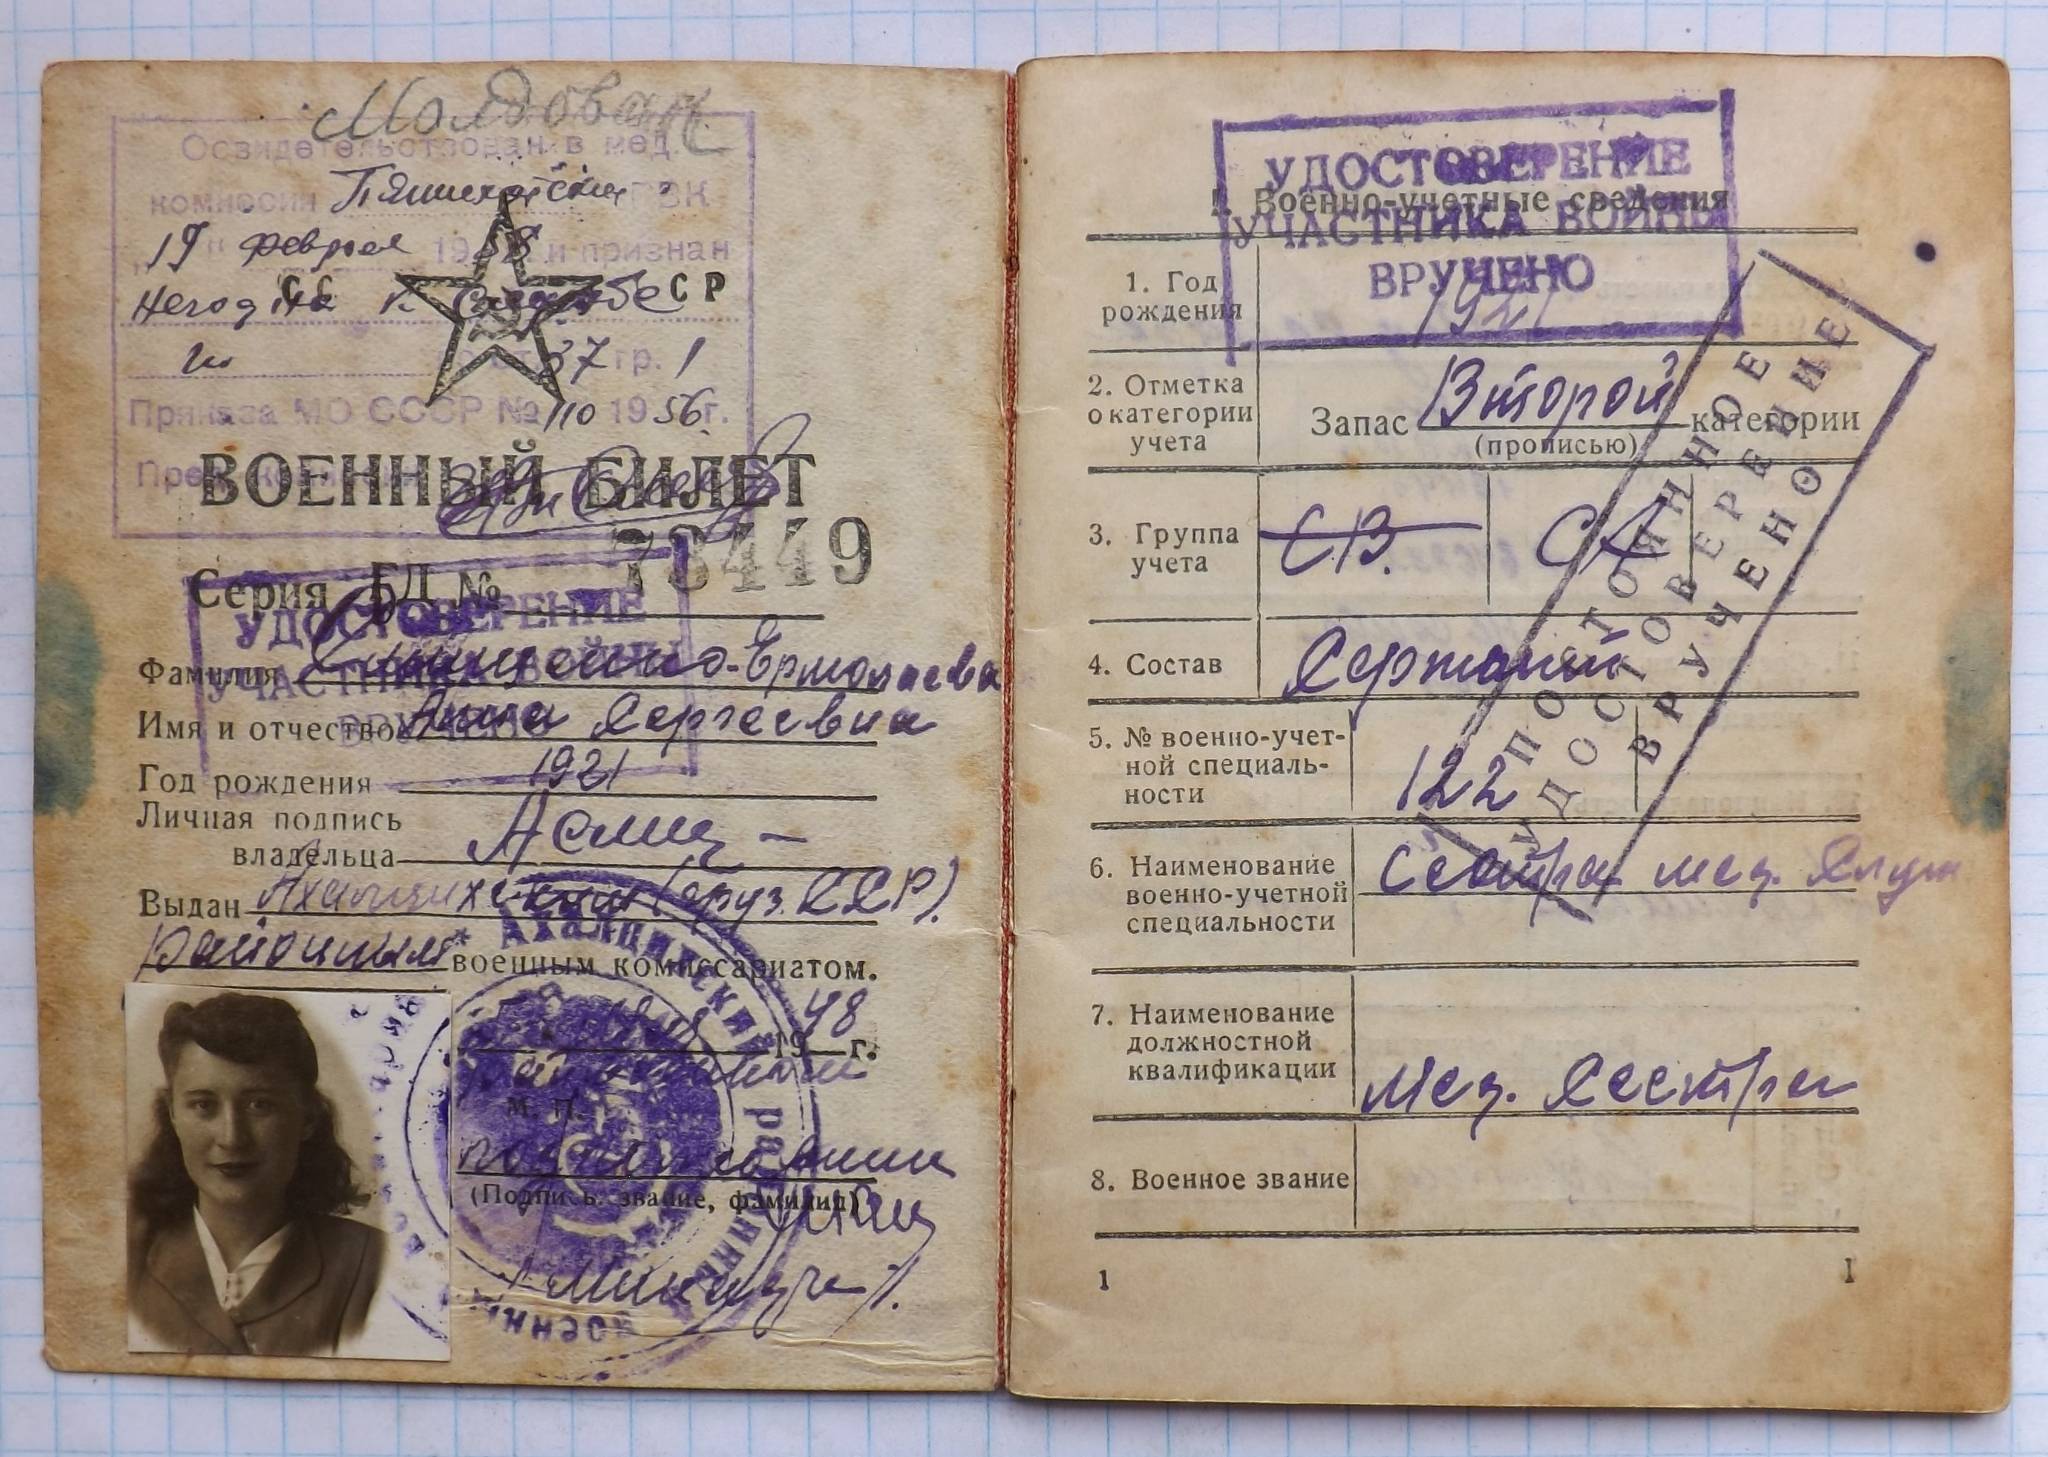 Молдован
Освидетельствован в мед.
комиссии Пятихатский РВК
"19" февраля 1958 и признан
Негодна к службе
ст 37 гр. 1
Приказа МО СССР № 110 1956 г.
Пред. комиссии
СС СР
ВОЕННЫЙ БИЛЕТ
Серия БД № 73449
УДОСТОВЕРЕНИЕ
УЧАСТНИКА ВОЙНЫ
ВРУЧЕНО
Фамилия -Ермолаева
Имя и отчество Анна Сергеевна
Год рождения 1921
Личная подпись
владельца
Выдан Ахалцихским (груз. ССР).
Районным военным комиссариатом.
1948 г.
М. П.
(Подпись, звание, фамилия)
Ахалцихский район
УДОСТОВЕРЕНИЕ
УЧАСТНИКА ВОЙНЫ
ВРУЧЕНО
I. Военно-учетные сведения
1. Год
рождения 1921
2. Отметка
о категории
учета
Запас Второй категории
(прописью)
3. Группа
учета
СВ. СА
4. Состав Сержант
5. № военно-учет-
ной специаль-
ности
122
6. Наименование
военно-учетной
специальности
сестра мед. Служ
7. Наименование
должностной
квалификации
мед. Сестра
8. Военное звание
ПОСТОЯННОЕ
УДОСТОВЕРЕНИЕ
ВРУЧЕНО
1 I